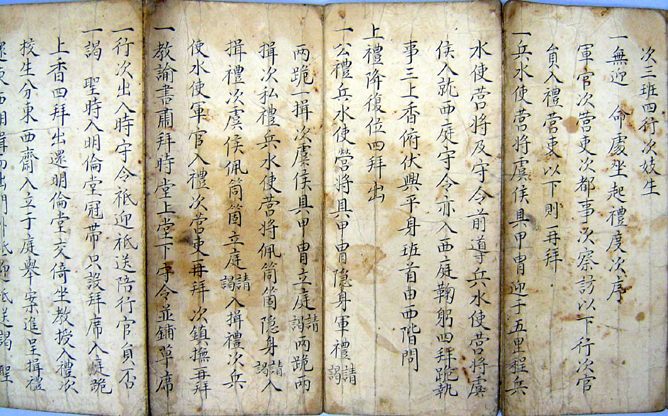 次三班四行次妓生
一無迎　命處坐起禮度次序
軍官次營吏次都事次察訪以下行次官
員入禮營吏以下則再拜
一兵水使營將虞侯具甲冑迎于五里程兵
水使營將及守令前導兵水使營將虞
侯入就西庭守令亦入西庭鞠躬四拜跪執
事三上香俯伏興平身班首由西階問
上禮降復位四拜出
一公禮兵水使營將具甲冑隐身軍禮請謁
兩跪一揖次虞侯具甲冑立庭請謁兩跪兩
揖次私禮兵水使營將佩筒箇隐身請謁入
揖禮次虞侯佩筒箇立庭請謁入揖禮次兵
使水使軍官入禮次營吏再拜次鎮撫再拜
一教諭書肅拜時堂上堂下守令並鋪草席
一行次出入時守令祗迎祗送陪行官員一否
一謁　聖時入明倫堂冠帶只設拜席入庭跪
上香四拜出還明倫堂交倚坐教授入禮次
校生分東西齋入立于庭擧案進呈揖禮
東西相揖而出門外祗迎祗送謁　聖